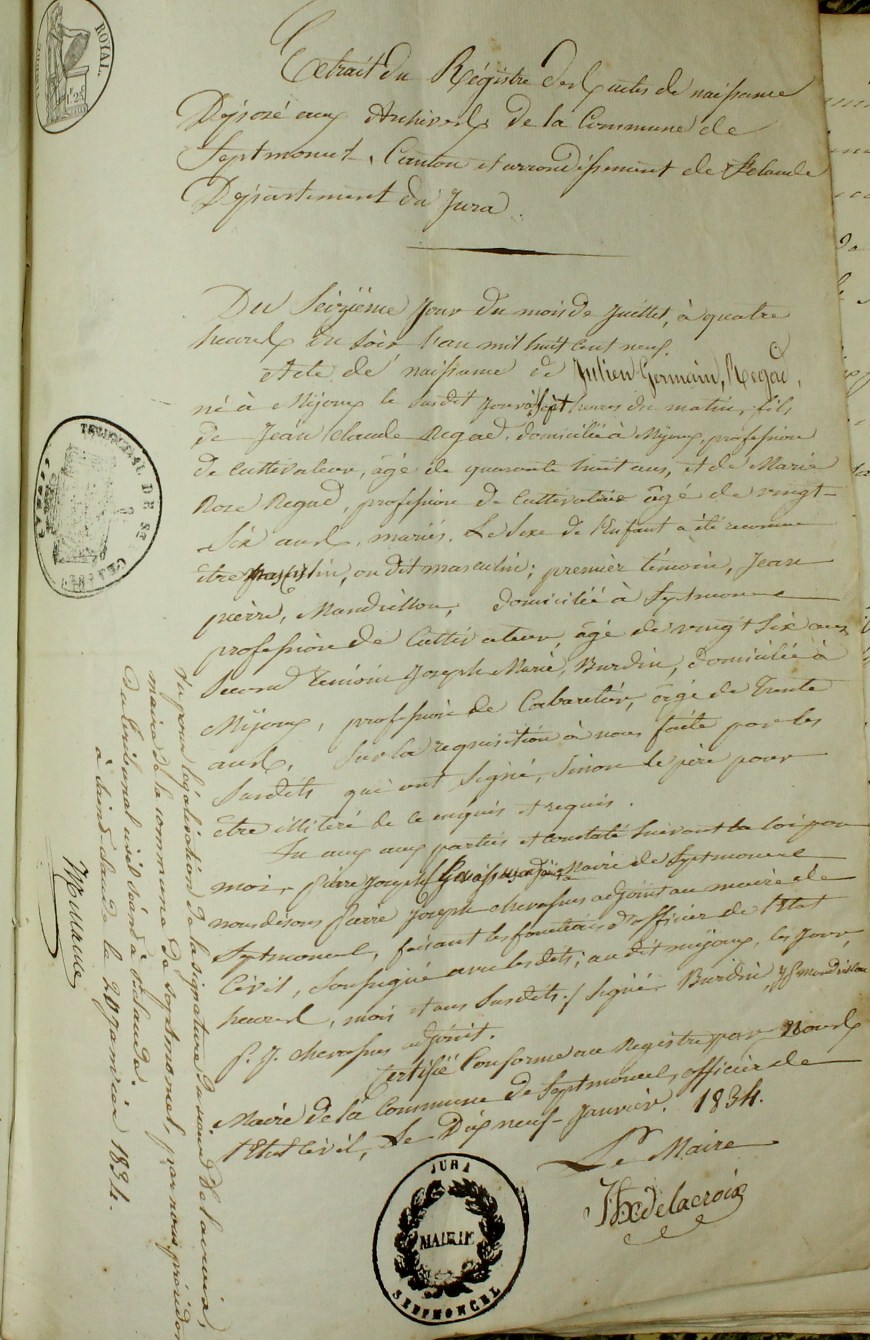 ROYAL.
1f.25
Extrait du Régistre des actes de naissance
Déposé aux Archives de la Commune de
Septmoncel, Canton et arrondissement de St Claude
Département du Jura.
Du Seizième jour du mois de Juillet, à quatre
heures du soir l'an mil huit cent neuf.
Acte de naissance de Julien Germain, Regad,
né à Mijoux le susdit jour à sept heures du matin, fils
de Jean Claude Regad, domicilié à Mijoux, profession
de Cultivateur, âgé de quarante huit ans, et de Marie
Rose Regad, profession de Cultivatrice âgé de vingt-
Six ans, mariés. Le Sexe de l'Enfant a été reconnu
être masculin; premier témoin, Jean
pierre, Mandrillon, domicilié à Septmoncel
profession de Cultivateur âgé de vingt Six ans,
Second témoin Joseph Marie, Burdin, domicilié à
Mijoux, profession de Cabaretier, âgé de Trente
ans, Sur la requisition à nous faite par les
Susdits qui ont Signé, Sinon le père pour
être illitéré de ce enquis et requis.
Lu aux parties et constaté Suivant la loi par
moi, pierre Joseph Maire de Septmoncel
nous disons pierre Joseph chevassus adjoint au maire de
Septmoncel, faisant les fonctions d'officier de l'Etat
Civil, Soussigné avec les dits; au dit mijoux, les jour,
heures, mois et ans Susdits. / Signés Burdin, mandrillon
p. J. chevassus adjoint.
Certifié Conforme au Registre par Nous
Maire de la Commune de Septmoncel, officier de
l'Etat Civil, Le Dix neuf Janvier. 1834.
Le Maire
Delacroix
JURA
MAIRIE
SEPTMONCEL
TRIBUNAL DE St CLAUDE
Vu pour légalisation de la signature du sieur Delacroix,
maire de la commune de Septmoncel, par nous, président
du tribunal civil séant à St Claude.
à Saint-Claude le 20 janvier 1834.